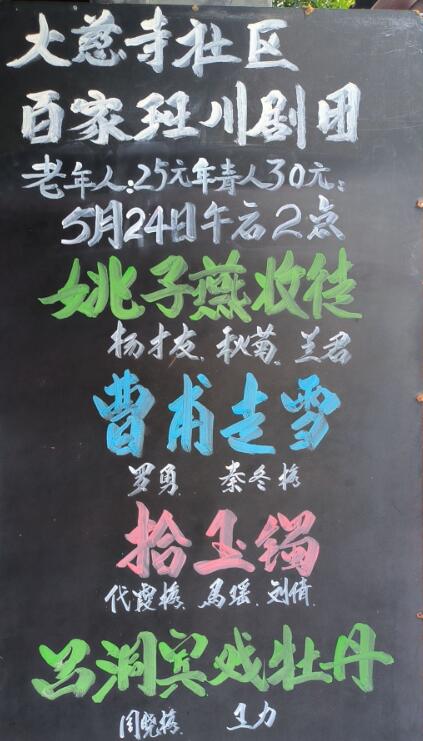 大慈寺社区
百家班川剧团
老年人:25元年青人30元:
5月24日午后2点
姚子燕妆徒
杨才友 秋菊 兰君
曹甫走雪
罗勇 秦冬梅
拾玉镯
代霞梅 马瑶 刘倩
吕洞宾戏牡丹
闫晓梅 王力